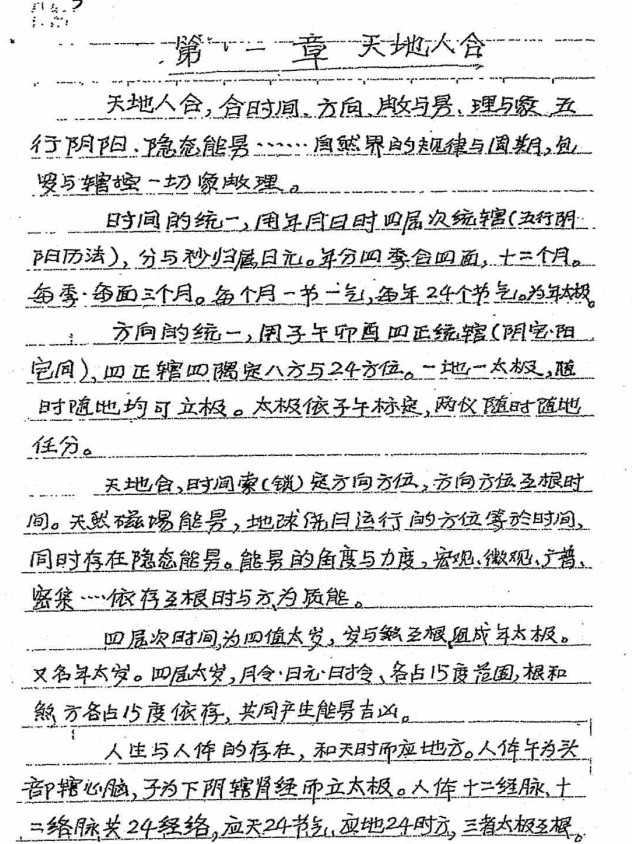 第一章 天地人合
天地人合,合时间、方向、数与易、理与象、五
行阴阳、隐态能易……自然界的规律与周期,包
罗与辖控一切象数理。
时间的统一,用年月日时四层次统辖(五行阴
阳历法),分与秒归属日元。年分四季合四面,十二个月。
每季·每面三个月。每个月一节一气,每年24个节气。为年太极。
方向的统一,用子午卯酉四正统辖(阴宅·阳
宅同),四正辖四隅定八方与24方位。一地一太极,随
时随地均可立极。太极依子午标定,两仪随时随地
任分。
天地合,时间索(锁)定方向方位,方向方位互根时
间。天然磁場能易,地球绕日运行的方位等於时间,
同时存在隐态能易。能易的角度与力度,宏观、微观、广普、
密集……依存互根时与方,为质能。
四层次时间,为四值太岁,岁与煞互根,组成年太极。
又名年太岁。四层太岁,月令·日元·时令、各占15度范围,根和
煞方各占15度依存,共同产生能易吉凶。
人生与人体的存在,和天时而应地方。人体午为头
部辖心脑,子为下阴辖肾经而立太极。人体十二经脉、十
二络脉,共24经络,应天24节气,应地24时方,三者太极互根。